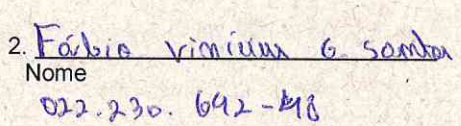 2. Fábio vinícius G. santos
Nome
022.230.642-48